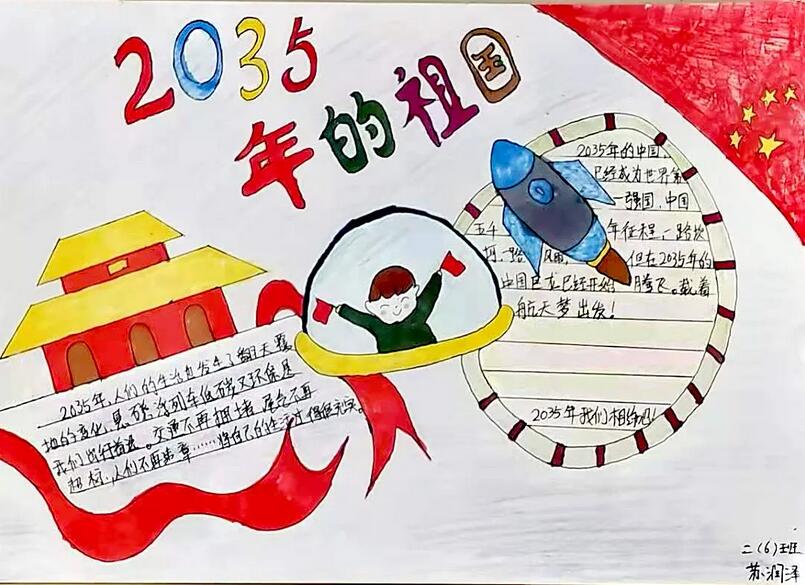 2035
年的祖国
2035年的中国,
已经成为世界第
一强国,中国
五千年征程,一路坎
坷一路风雨 但在2035年的
中国巨龙已经开始腾飞。载着
航天梦出发!
2035年我们相约吧!
2035年,人们的生活也发生了翻天覆
地的变化,悬磁浮列车低碳又环保是
我们出行首选。交通不再拥堵,尾气不再
超标,人们不再
将自己的生活过得很充实。
二(6)班
苏润泽